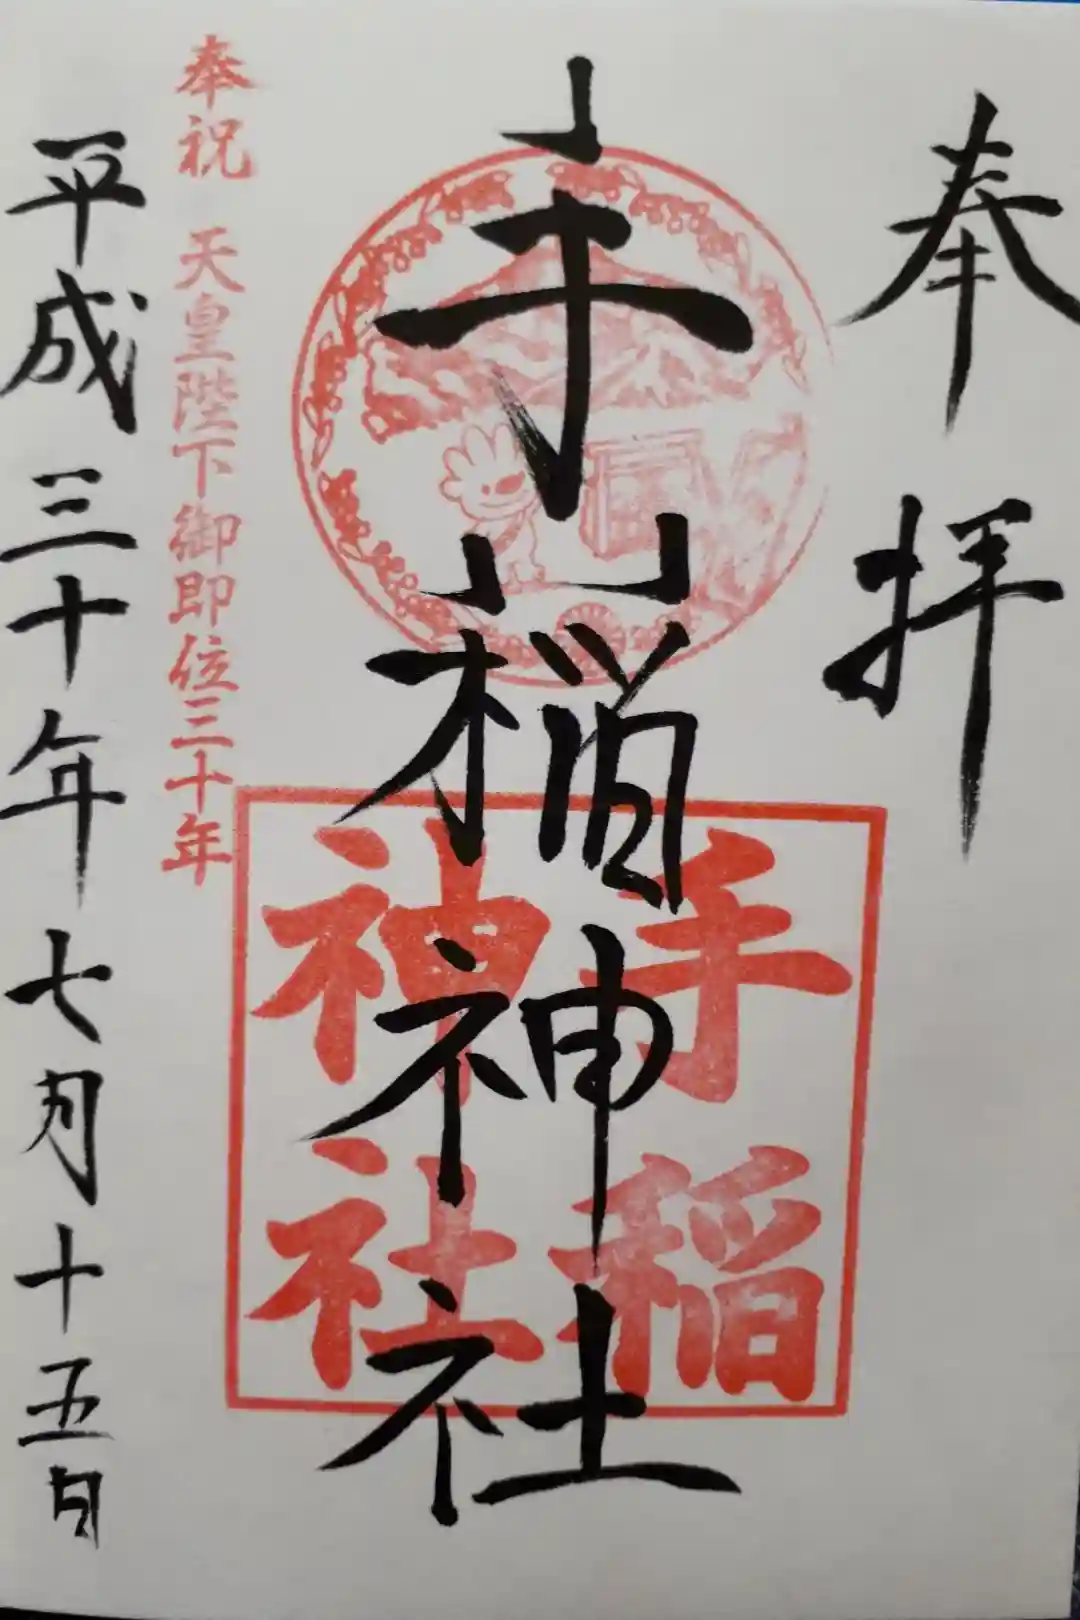 奉拝
手稲神社
手稲
神社
奉祝 天皇陛下御即位三十年
平成三十年七月十五日